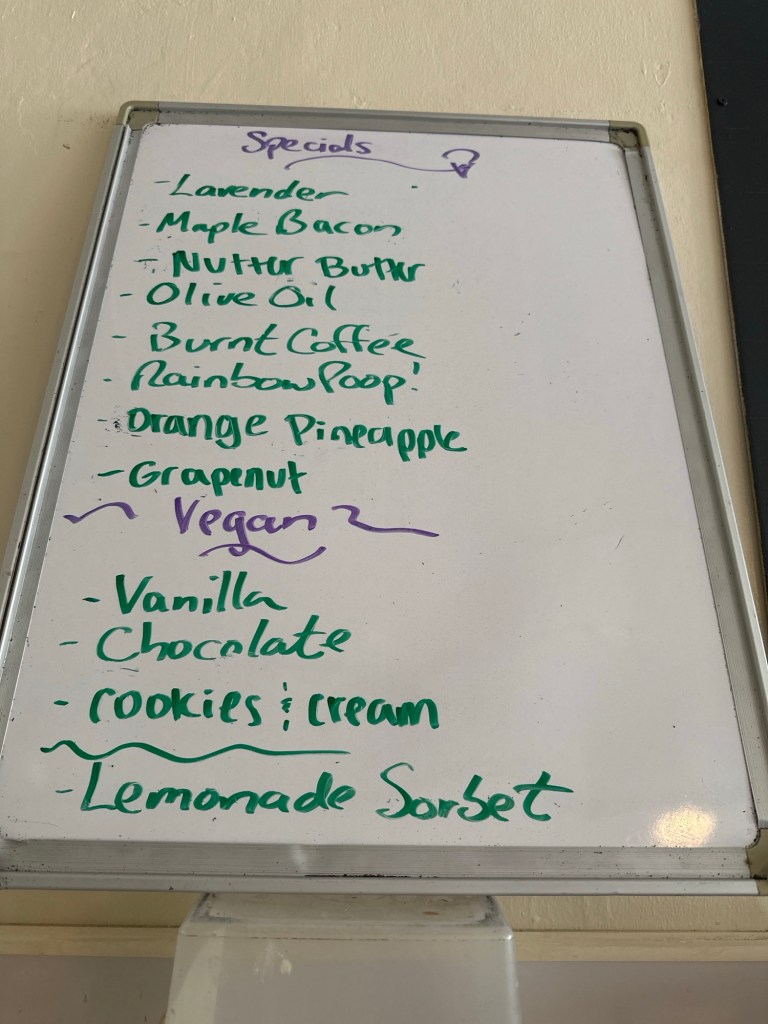 Specials
- Lavender
- Maple Bacon
- Nutter Butter
- Olive Oil
- Burnt Coffee
- Rainbow Poop!
- Orange Pineapple
- Grapenut
Vegan
- Vanilla
- Chocolate
- cookies & cream
- Lemonade Sorbet